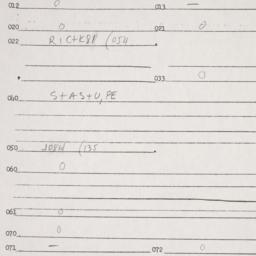 012 0 013 —
020 0 021 0
022
033 0
040 S+AS+U, PE
050 1084 (135
060 0
061 0
070 0
071 — 072 0